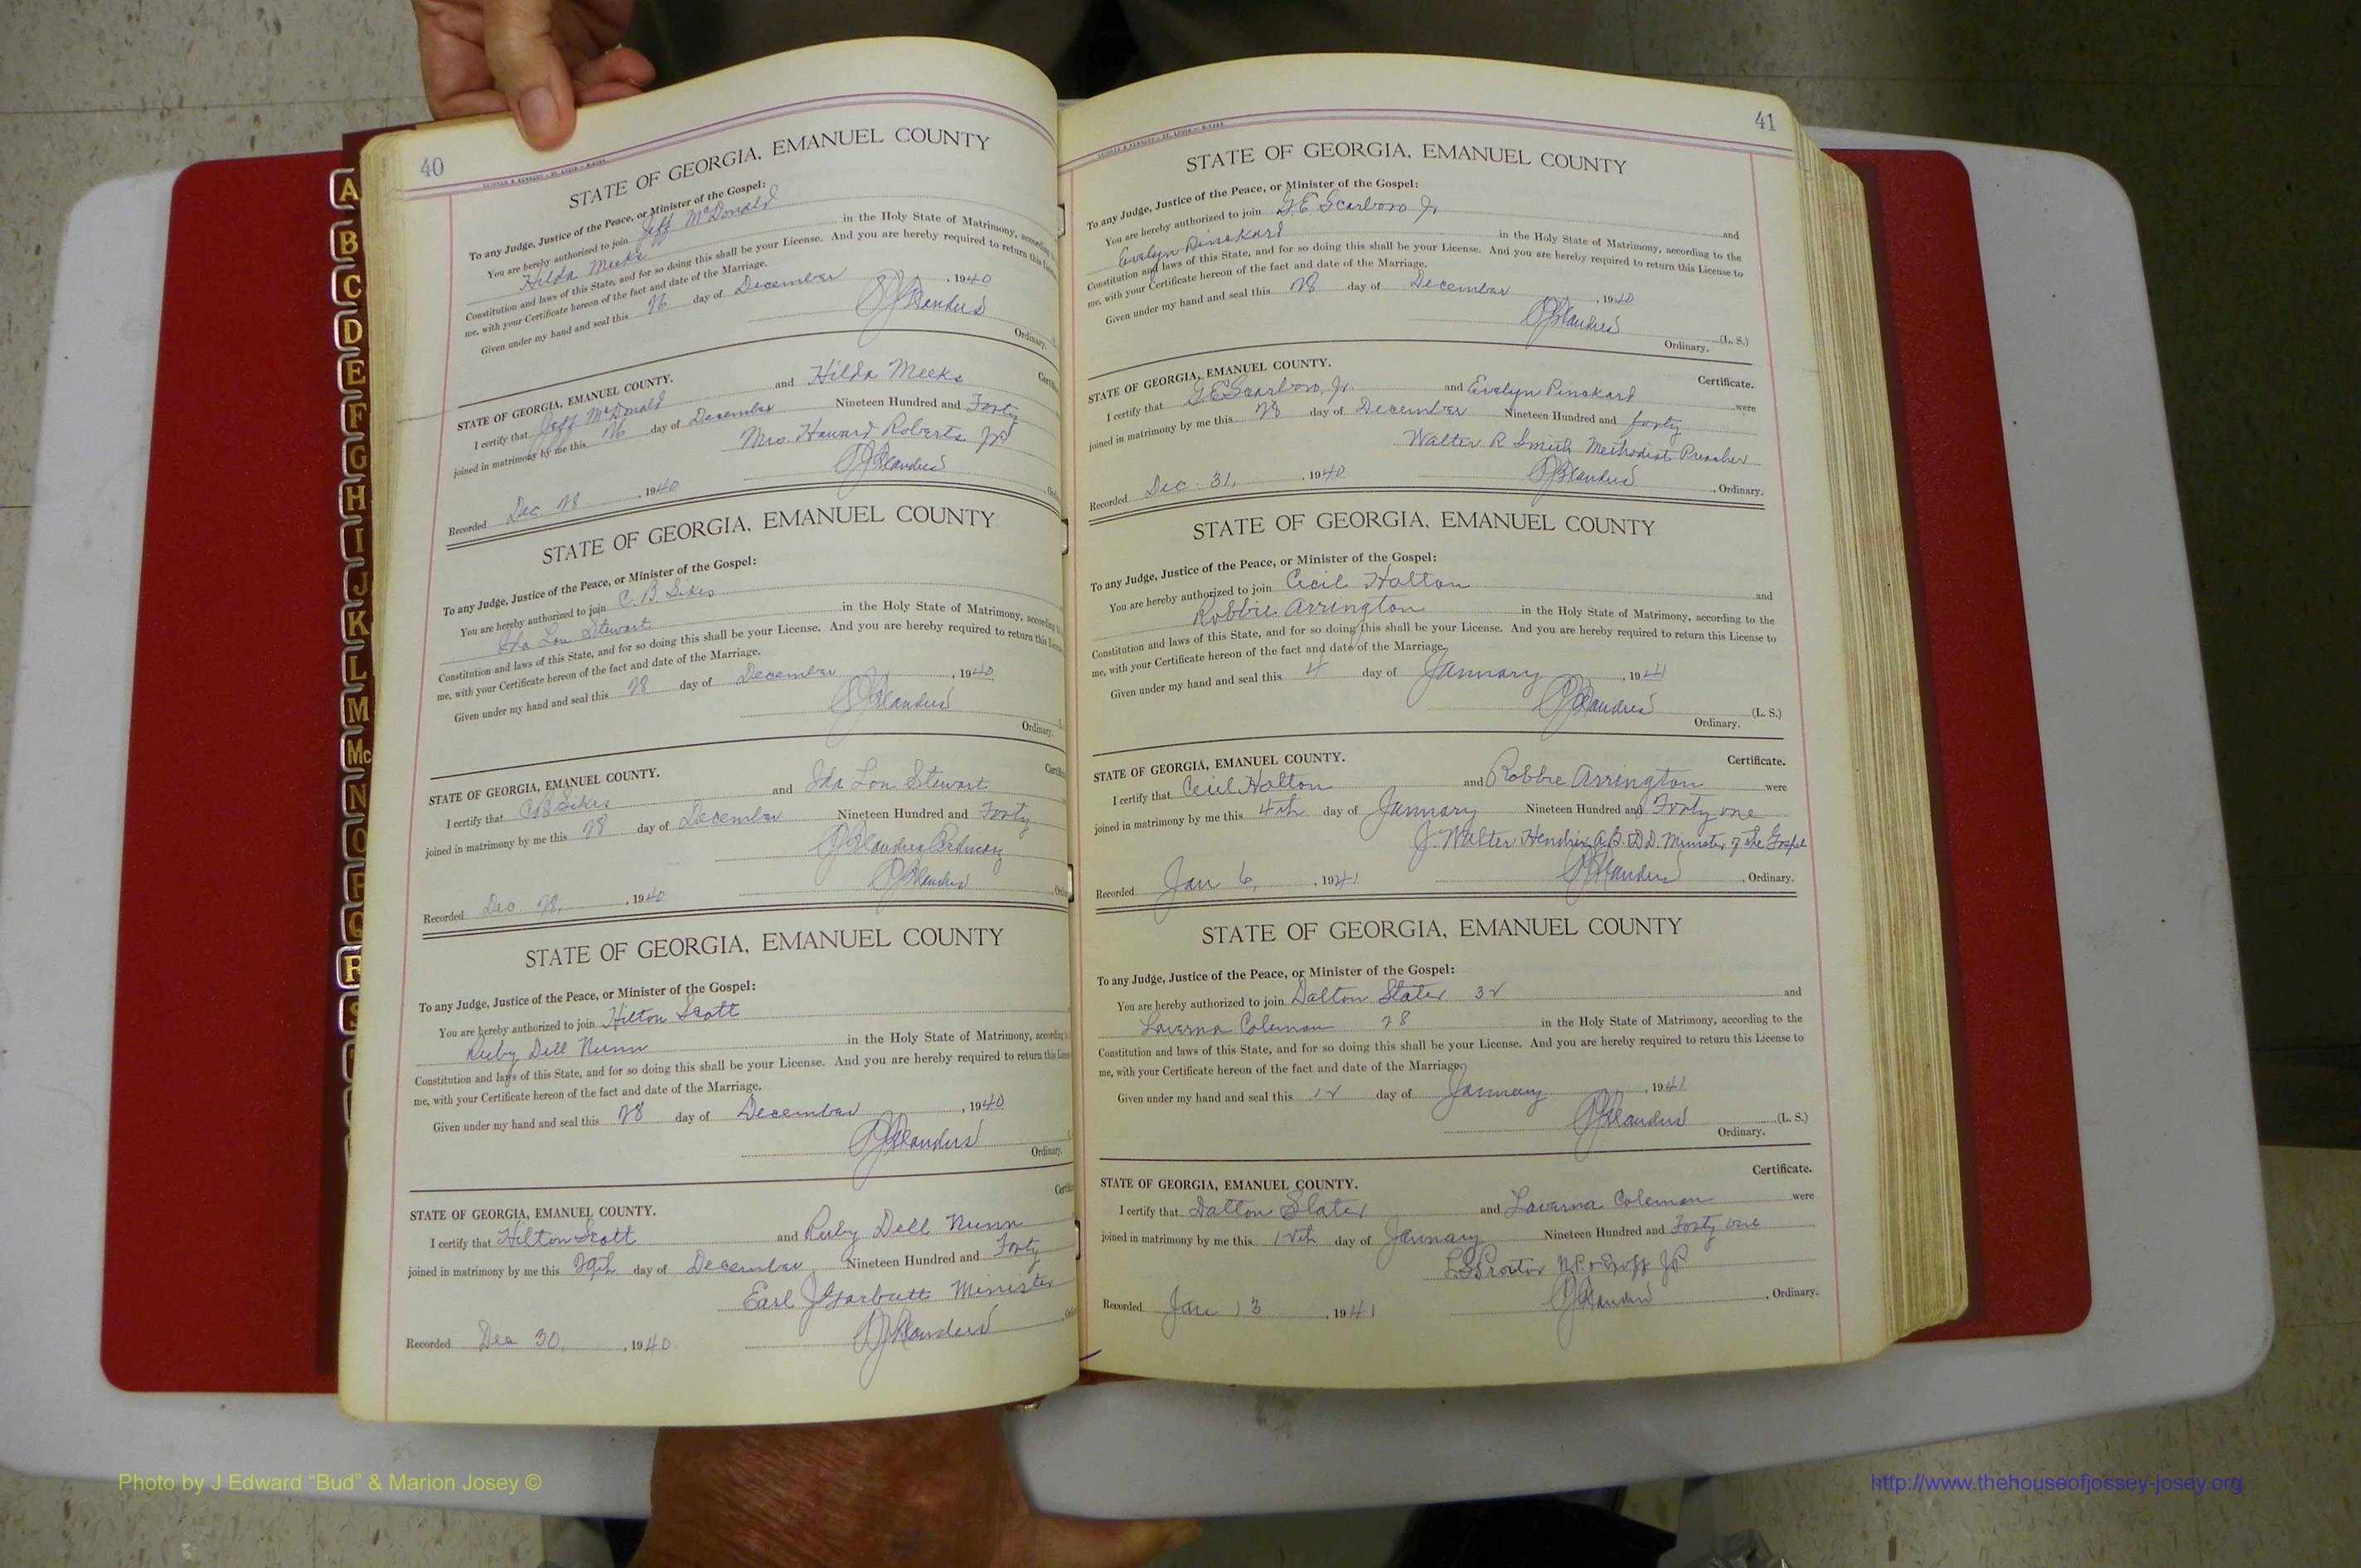 40
STATE OF GEORGIA, EMANUEL COUNTY
To any Judge, Justice of the Peace, or Minister of the Gospel:
You are hereby authorized to join Jeff McDonald
Hilda Meeks in the Holy State of Matrimony, according
Constitution and laws of this State, and for so doing this shall be your License. And you are hereby required to return this
me, with your Certificate hereon of the fact and date of the Marriage.
Given under my hand and seal this 26 day of December, 1940
Ordinary.
STATE OF GEORGIA, EMANUEL COUNTY.
I certify that Jeff McDonald and Hilda Meeks
joined in matrimony by me this 26 day of December Nineteen Hundred and Forty
Mrs Howard Roberts JP
Recorded Dec. 28, 1940
STATE OF GEORGIA, EMANUEL COUNTY
To any Judge, Justice of the Peace, or Minister of the Gospel:
You are hereby authorized to join C. B. Sikes
Ida Lou Stewart in the Holy State of Matrimony, according
Constitution and laws of this State, and for so doing this shall be your License. And you are hereby required to return this
me, with your Certificate hereon of the fact and date of the Marriage.
Given under my hand and seal this 28 day of December, 1940
Ordinary.
STATE OF GEORGIA, EMANUEL COUNTY.
I certify that C B Sikes and Ida Lou Stewart
joined in matrimony by me this 28 day of December Nineteen Hundred and Forty
Recorded Dec. 28, 1940
STATE OF GEORGIA, EMANUEL COUNTY
To any Judge, Justice of the Peace, or Minister of the Gospel:
You are hereby authorized to join Hilton Scott
Ruby Dell Nunn in the Holy State of Matrimony, according
Constitution and laws of this State, and for so doing this shall be your License. And you are hereby required to return this
me, with your Certificate hereon of the fact and date of the Marriage.
Given under my hand and seal this 28 day of December, 1940
Ordinary.
STATE OF GEORGIA, EMANUEL COUNTY.
I certify that Hilton Scott and Ruby Dell Nunn
joined in matrimony by me this 29th day of December Nineteen Hundred and Forty
Earl J Garbutt Minister
Recorded Dec 30, 1940
41
STATE OF GEORGIA, EMANUEL COUNTY
To any Judge, Justice of the Peace, or Minister of the Gospel:
You are hereby authorized to join G. E. Scarboro Jr and
Evelyn Pinskard in the Holy State of Matrimony, according to the
Constitution and laws of this State, and for so doing this shall be your License. And you are hereby required to return this License to
me, with your Certificate hereon of the fact and date of the Marriage.
Given under my hand and seal this 28 day of December, 1940
(L. S.)
Ordinary.
STATE OF GEORGIA, EMANUEL COUNTY. Certificate.
I certify that G E Scarboro, Jr. and Evelyn Pinskard were
joined in matrimony by me this 28 day of December Nineteen Hundred and forty
Walter R Smith Methodist Preacher
Recorded Dec. 31, 1940 , Ordinary.
STATE OF GEORGIA, EMANUEL COUNTY
To any Judge, Justice of the Peace, or Minister of the Gospel:
You are hereby authorized to join Cecil Holton and
Robbie Arrington in the Holy State of Matrimony, according to the
Constitution and laws of this State, and for so doing this shall be your License. And you are hereby required to return this License to
me, with your Certificate hereon of the fact and date of the Marriage.
Given under my hand and seal this 4 day of January, 1941
(L. S.)
Ordinary.
STATE OF GEORGIA, EMANUEL COUNTY. Certificate.
I certify that Cecil Holton and Robbie Arrington were
joined in matrimony by me this 4th day of January Nineteen Hundred and Forty one
J. Walter Hendrix A.B. D.D. Minister of the Gospel
Recorded Jan 6, 1941 , Ordinary.
STATE OF GEORGIA, EMANUEL COUNTY
To any Judge, Justice of the Peace, or Minister of the Gospel:
You are hereby authorized to join Dalton Slater 32 and
Laverna Coleman 28 in the Holy State of Matrimony, according to the
Constitution and laws of this State, and for so doing this shall be your License. And you are hereby required to return this License to
me, with your Certificate hereon of the fact and date of the Marriage.
Given under my hand and seal this 12 day of January, 1941
(L. S.)
Ordinary.
STATE OF GEORGIA, EMANUEL COUNTY. Certificate.
I certify that Dalton Slater and Laverna Coleman were
joined in matrimony by me this 12th day of January Nineteen Hundred and Forty one
Proctor N.P. & Exoff JP
Recorded Jan 13, 1941 , Ordinary.
A
B
C
D
E
F
G
H
I
J
K
L
M
Mc
N
O
P
Q
R
S
Photo by J Edward “Bud” & Marion Josey ©
http://www.thehouseofjossey-josey.org